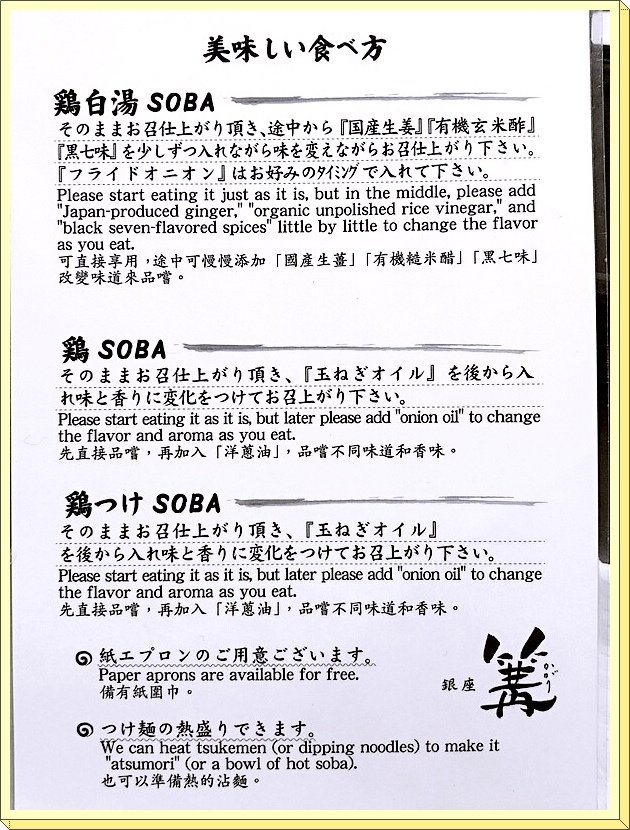 美味しい食べ方
鶏白湯 SOBA
そのままお召仕上がり頂き、途中から『国産生姜』『有機玄米酢』
『黒七味』を少しずつ入れながら味を変えながらお召仕上がり下さい。
『フライドオニオン』はお好みのタイミングで入れて下さい。
Please start eating it just as it is, but in the middle, please add
"Japan-produced ginger," "organic unpolished rice vinegar," and
"black seven-flavored spices" little by little to change the flavor
as you eat.
可直接享用，途中可慢慢添加「國産生薑」「有機糙米醋」「黑七味」
改變味道來品嚐。
鶏 SOBA
そのままお召仕上がり頂き、『玉ねぎオイル』を後から入
れ味と香りに変化をつけてお召上がり下さい。
Please start eating it as it is, but later please add "onion oil" to change
the flavor and aroma as you eat.
先直接品嚐，再加入「洋蔥油」，品嚐不同味道和香味。
鶏つけ SOBA
そのままお召仕上がり頂き、『玉ねぎオイル』
を後から入れ味と香りに変化をつけてお召上がり下さい。
Please start eating it as it is, but later please add "onion oil" to change
the flavor and aroma as you eat.
先直接品嚐，再加入「洋蔥油」，品嚐不同味道和香味。
紙エプロンのご用意ございます。
Paper aprons are available for free.
備有紙圍巾。
銀座 篝 かがり
つけ麺の熱盛りできます。
We can heat tsukemen (or dipping noodles) to make it
"atsumori" (or a bowl of hot soba).
也可以準備熱的沾麵。